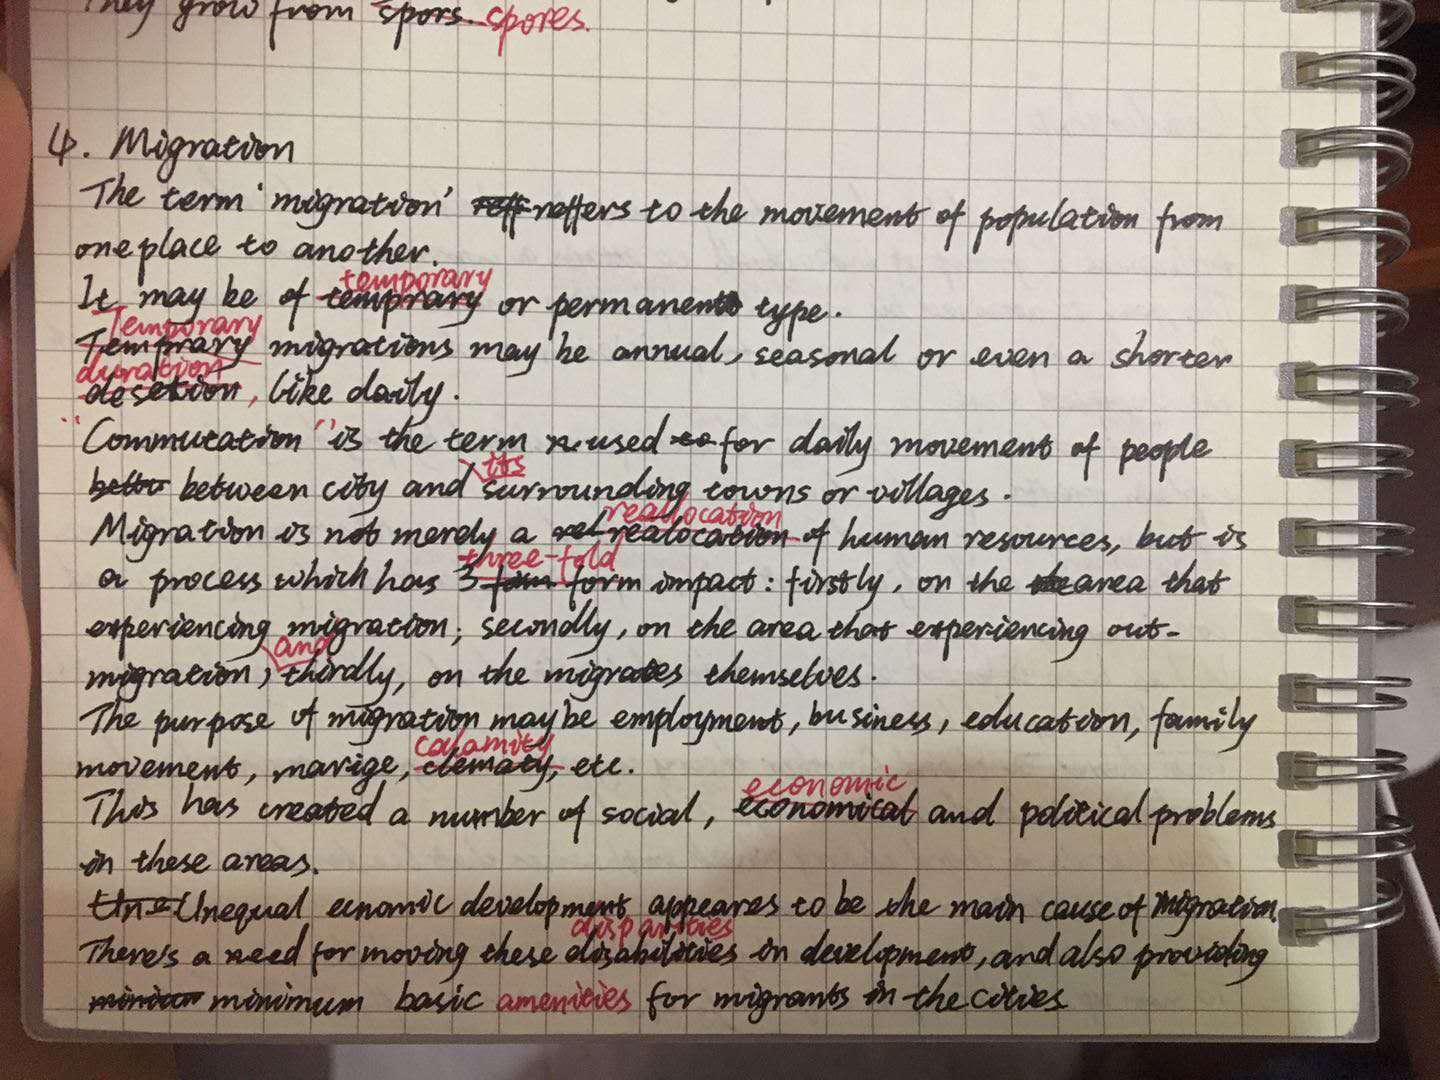 They grow from spors. spores.
4. Migration
The term 'migration' reff reffers to the movement of population from
one place to another.
temporary
It may be of temprary or permanent type.
Temporary
Temprary migrations may be annual, seasonal or even a shorter
duration
desetion, like daily.
"Commutation" is the term used to for daily movement of people
its
between city and surrounding towns or villages.
reallocation
Migration is not merely a rel realocation of human resources, but is
three-fold
a process which has 3 form impact: firstly, on the area that
experiencing migration; secondly, on the area that experiencing out-
and
migration, thirdly, on the migrates themselves.
The purpose of migration may be employment, business, education, family
calamity
movement, marige, clematy, etc.
economic
This has created a number of social, economical and political problems
in these areas.
Une Unequal ecnomic development appeares to be the main cause of migration
disparities
There's a need for moving these disabilities in development, and also providing
minimum basic amenities for migrants in the cities